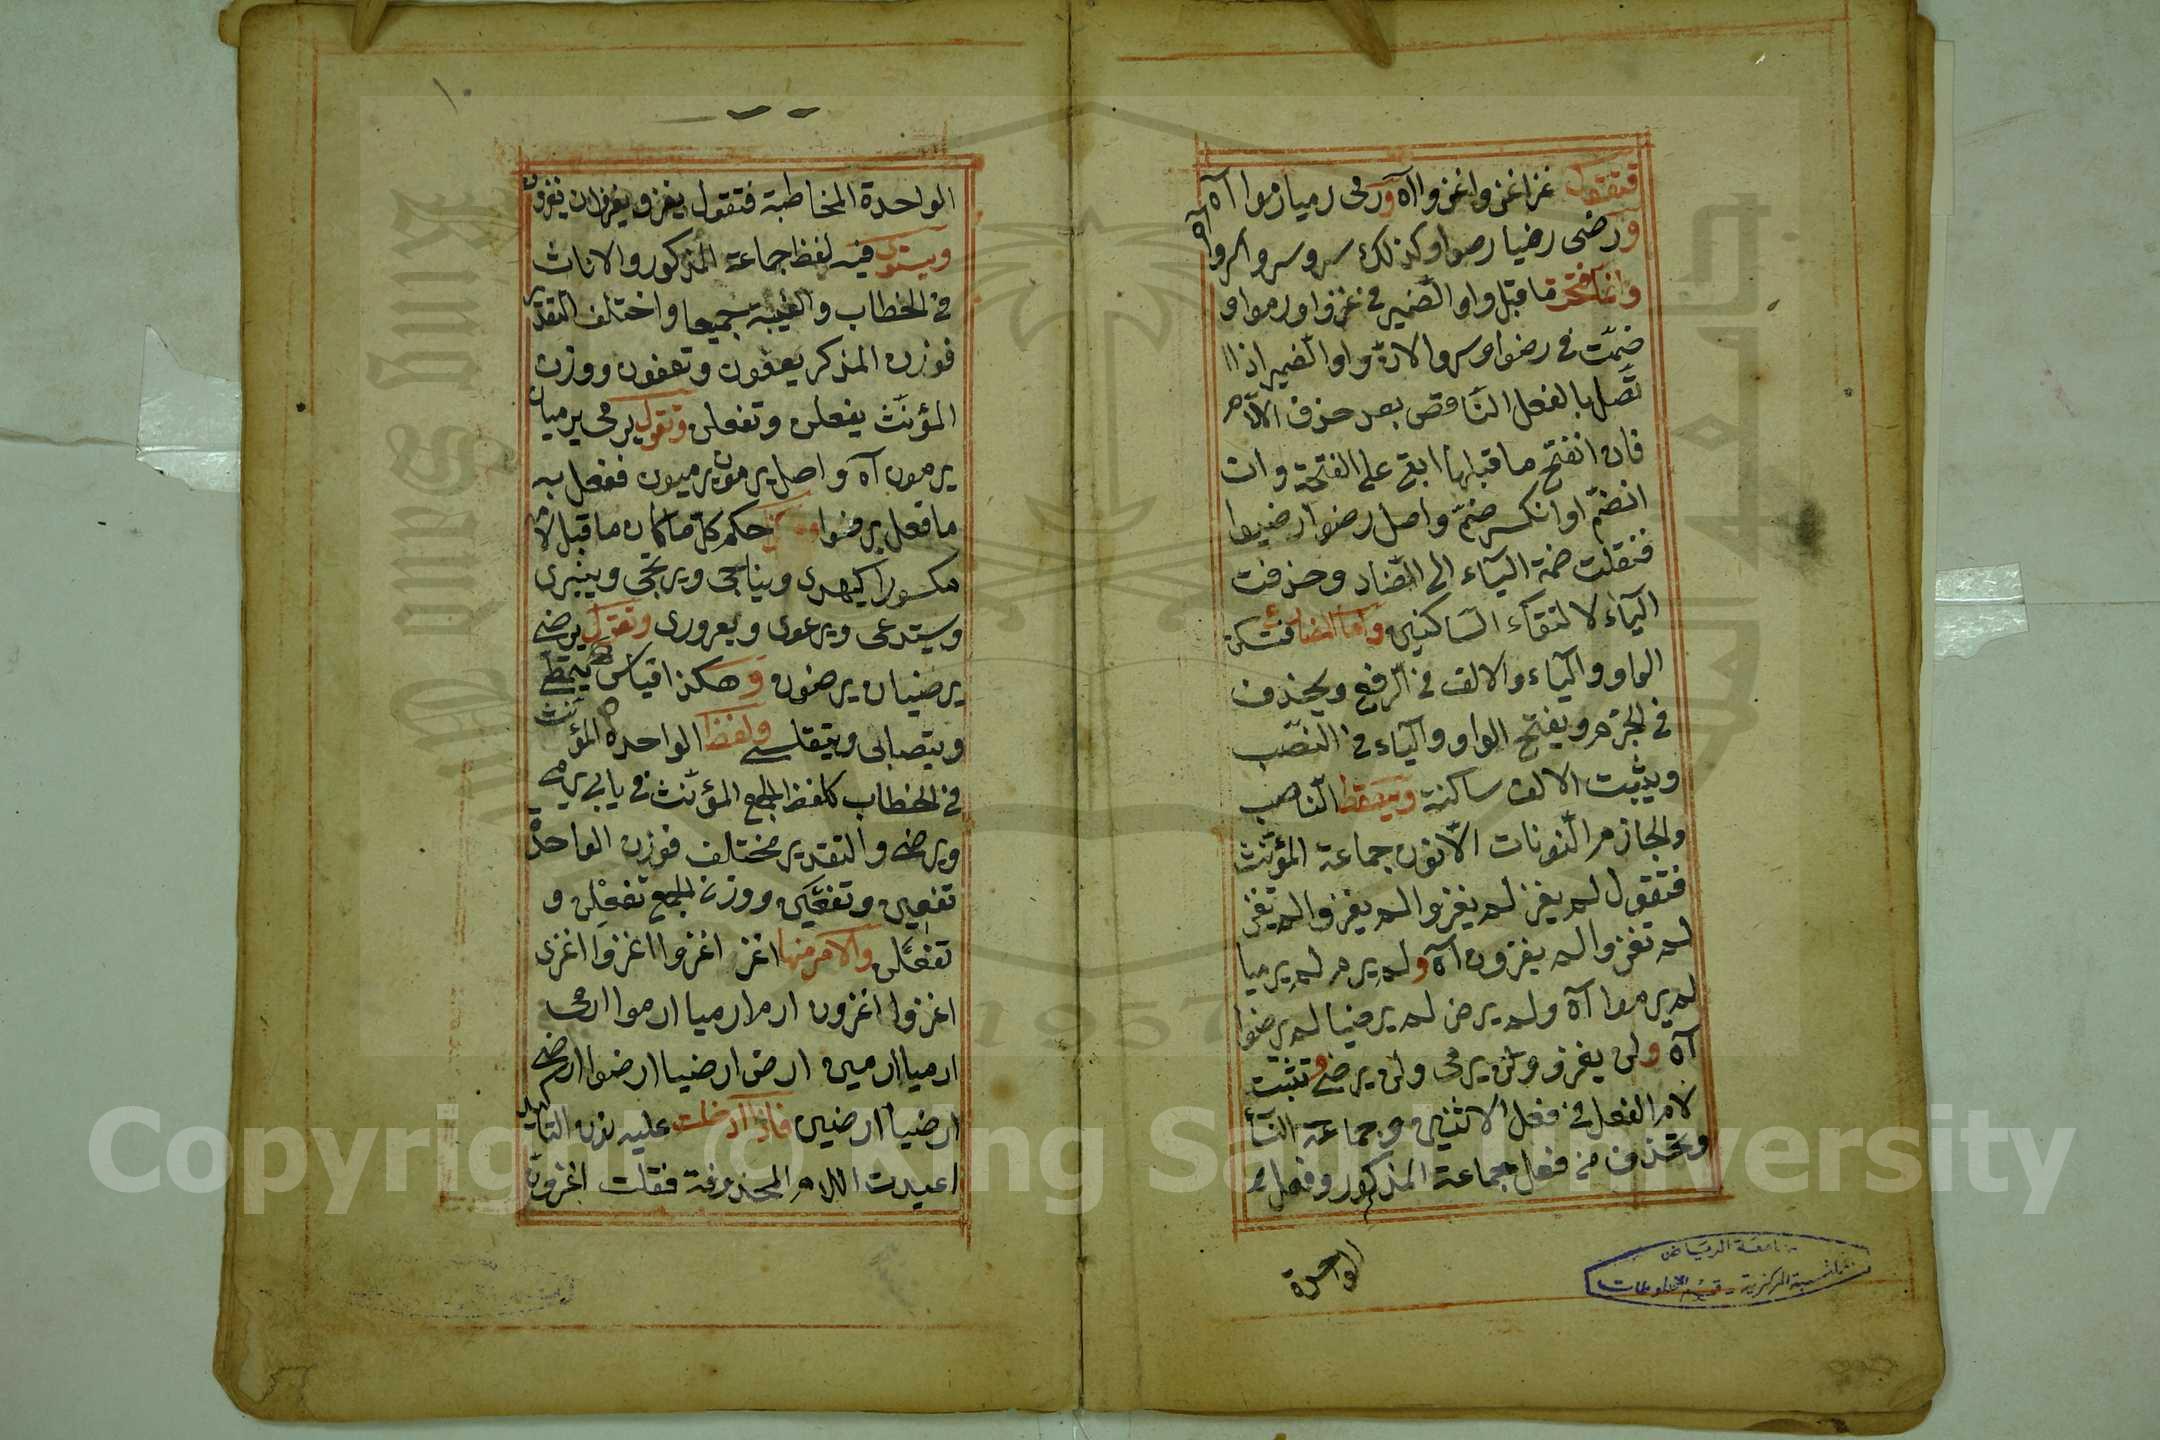 فتقول غزا غزوا غزوا آه ورمى رميا رموا آه
ورضى رضيا رضوا وكذلك سرو سروا سروا آه
وانما فتحت ما قبل واو الضمير في غزوا ورموا و
ضمّت في رضوا وسروا لانّ واو الضمير اذا ا
تّصل بالفعل النّاقص بعد حذف اللّام
فان انفتح ما قبلها ابقى على الفتحة وان
انضمّ او انكسر ضمّ واصل رضوا رضيوا
فنقلت ضمة الياء الى الضّاد وحذفت
الياء لالتقاء السّاكنين وامّا المضارع فتسكن
الواو والياء والالف في الرّفع ويحذف
في الجزم ويفتح الواو والياء في النّصب
ويثبت الالف ساكنة ويسقط النّاصب
والجازم النّونات الّا نون جماعة المؤنّث
فتقول لم يغز لم يغزوا لم يغزوا لم تغز
لم تغزوا لم يغزون آه ولم يرم لم يرميا
لم يرموا آه ولم يرض لم يرضيا لم يرضوا
آه ولن يغزو ولن يرمى ولن يرضى وتثبت
لام الفعل في فعل الاثنين وجماعة النّساء
وتحذف من فعل جماعة المذكور وفعل
الواحدة
جامعة الرياض
المكتبة المركزية - قسم المخطوطات
١٠
الواحدة المخاطبة فتقول يغزو يغزوان يغزون
ويستوى فيه لفظ جماعة المذكور والاناث
في الخطاب والغيبة جميعا واختلف التقدير
فوزن المذكر يعفون وتعفون ووزن
المؤنّث يفعلن وتفعلن وتقول يرمى يرميان
يرمون آه واصل يرمون يرميون ففعل به
ما فعل برضوا وهكذا حكم كلّ ما كان ما قبل لامه
مكسورا كيهدى ويناجى ويرتجى وينبرى
ويستدعى ويرعوى ويعرورى وتقول يرضى
يرضيان يرضون وهكذا قياس يتمطى
ويتصابى ويتقلسى ولفظ الواحدة المؤنّث
في الخطاب كلفظ الجمع المؤنّث في بابي يرمى
ويرضى والتقدير مختلف فوزن الواحدة
تفعين وتفعَين ووزن الجمع تفعِلن و
تفعَلن والامر منها اغز اغزوا اغزوا اغزى
اغزوا اغزون ارم ارميا ارموا ارمى
ارميا ارمين ارض ارضيا ارضوا ارضى
ارضيا ارضين فاذا ادخلت عليه نون التاكيد
اعيدت اللام المحذوفة فقلت اغزونّ
King Saud University
1957
Copyright © King Saud University